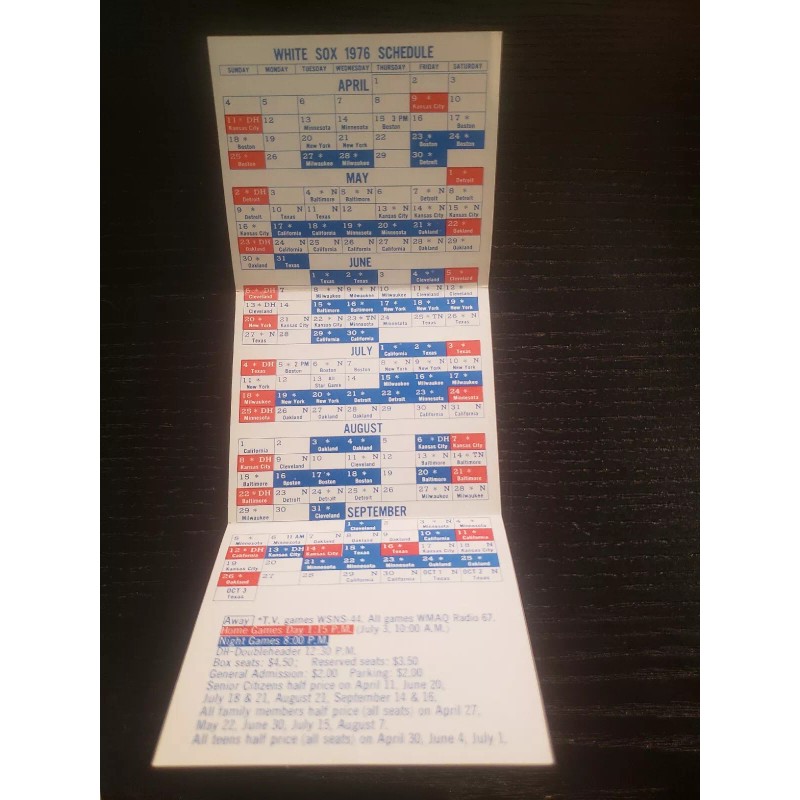 WHITE SOX 1976 SCHEDULE
SUNDAY MONDAY TUESDAY WEDNESDAY THURSDAY FRIDAY SATURDAY
APRIL 1 2 3
4 5 6 7 8 9 * 10
Kansas City
11 * DH 12 13 14 15 3 PM 16 17 *
Kansas City Minnesota Minnesota Boston Boston
18 * 19 20 21 22 23 * 24 *
Boston New York New York Boston Boston
25 * 26 27 * 28 * 29 30 *
Boston Milwaukee Milwaukee Detroit
MAY 1 *
Detroit
2 * DH 3 4 * N 5 * N 6 7 * N 8 *
Detroit Baltimore Baltimore Detroit Detroit
9 * 10 N 11 * N 12 13 * N 14 * N 15 * N
Detroit Texas Texas Kansas City Kansas City Kansas City
16 * 17 * 18 * 19 * 20 * 21 * 22 *
Kansas City California California Minnesota Minnesota Oakland Oakland
23 * DH 24 N 25 N 26 N 27 N 28 * N 29 *
Oakland California California California California Oakland Oakland
30 * 31
Oakland Texas
JUNE
1 * 2 * 3 4 * 5 *
Texas Texas Cleveland Cleveland
6 * DH 7 8 * N 9 * N 10 11 * N 12 *
Cleveland Milwaukee Milwaukee Cleveland Cleveland
13 * DH 14 15 * 16 * 17 * 18 * 19 *
Cleveland Baltimore Baltimore New York Milwaukee New York
20 * 21 N 22 * N 23 * TN 24 25 * TN 26 * N
New York Kansas City Kansas City Minnesota Minnesota Texas Texas
27 * N 28 29 * 30 *
Texas California California
JULY 1 * 2 * 3 *
California Texas Texas
4 * DH 5 * 2 PM 6 * N 7 N 8 * N 9 * N 10 *
Texas Boston Boston Boston New York New York New York
11 * 12 13 14 15 * 16 * 17 *
New York Star Game Milwaukee Milwaukee Milwaukee
18 * 19 * 20 * 21 * 22 * 23 * 24 *
Milwaukee New York New York Detroit Detroit Minnesota Minnesota
25 * DH 26 N 27 N 28 N 29 30 N 31 N
Minnesota Oakland Oakland Oakland California California
AUGUST
1 2 3 * 4 * 5 6 * DH 7 *
California Oakland Oakland Kansas City Kansas City
8 * DH 9 N 10 11 * N 12 13 * N 14 * TN
Kansas City Cleveland Cleveland Baltimore Baltimore
15 * 16 17 * 18 * 19 20 * 21 *
Baltimore Boston Boston Boston Baltimore Baltimore
22 * DH 23 N 24 * N 25 * N 26 27 * N 28 * N
Baltimore Detroit Detroit Detroit Milwaukee Milwaukee
29 * 30 31 *
Milwaukee Cleveland
SEPTEMBER
1 * 2 3 * N 4 *
Cleveland Minnesota Minnesota
5 * 6 11 AM 7 N 8 N 9 10 * 11 *
Minnesota Minnesota Oakland Oakland California California
12 * DH 13 * DH 14 * 15 * 16 * 17 N 18 N
California Kansas City Kansas City Texas Texas Kansas City Kansas City
19 20 21 * 22 * 23 * 24 * 25 *
Kansas City Minnesota Minnesota Minnesota Oakland Oakland
26 * 27 28 29 N 30 N OCT 1 N OCT 2 N
Oakland California California Texas Texas
OCT 3
Texas
Away *T.V. games WSNS-44. All games WMAQ Radio 67.
Home Games Day 1:15 P.M. (July 3, 10:00 A.M.)
Night Games 8:00 P.M.
DH-Doubleheader 12:30 P.M.
Box seats: $4.50; Reserved seats: $3.50
General Admission: $2.00 Parking: $2.00
Senior Citizens half price on April 11, June 20,
July 18 & 21, August 21, September 14 & 16.
All family members half price (all seats) on April 27,
May 22, June 30, July 15, August 7.
All teens half price (all seats) on April 30, June 4, July 1.